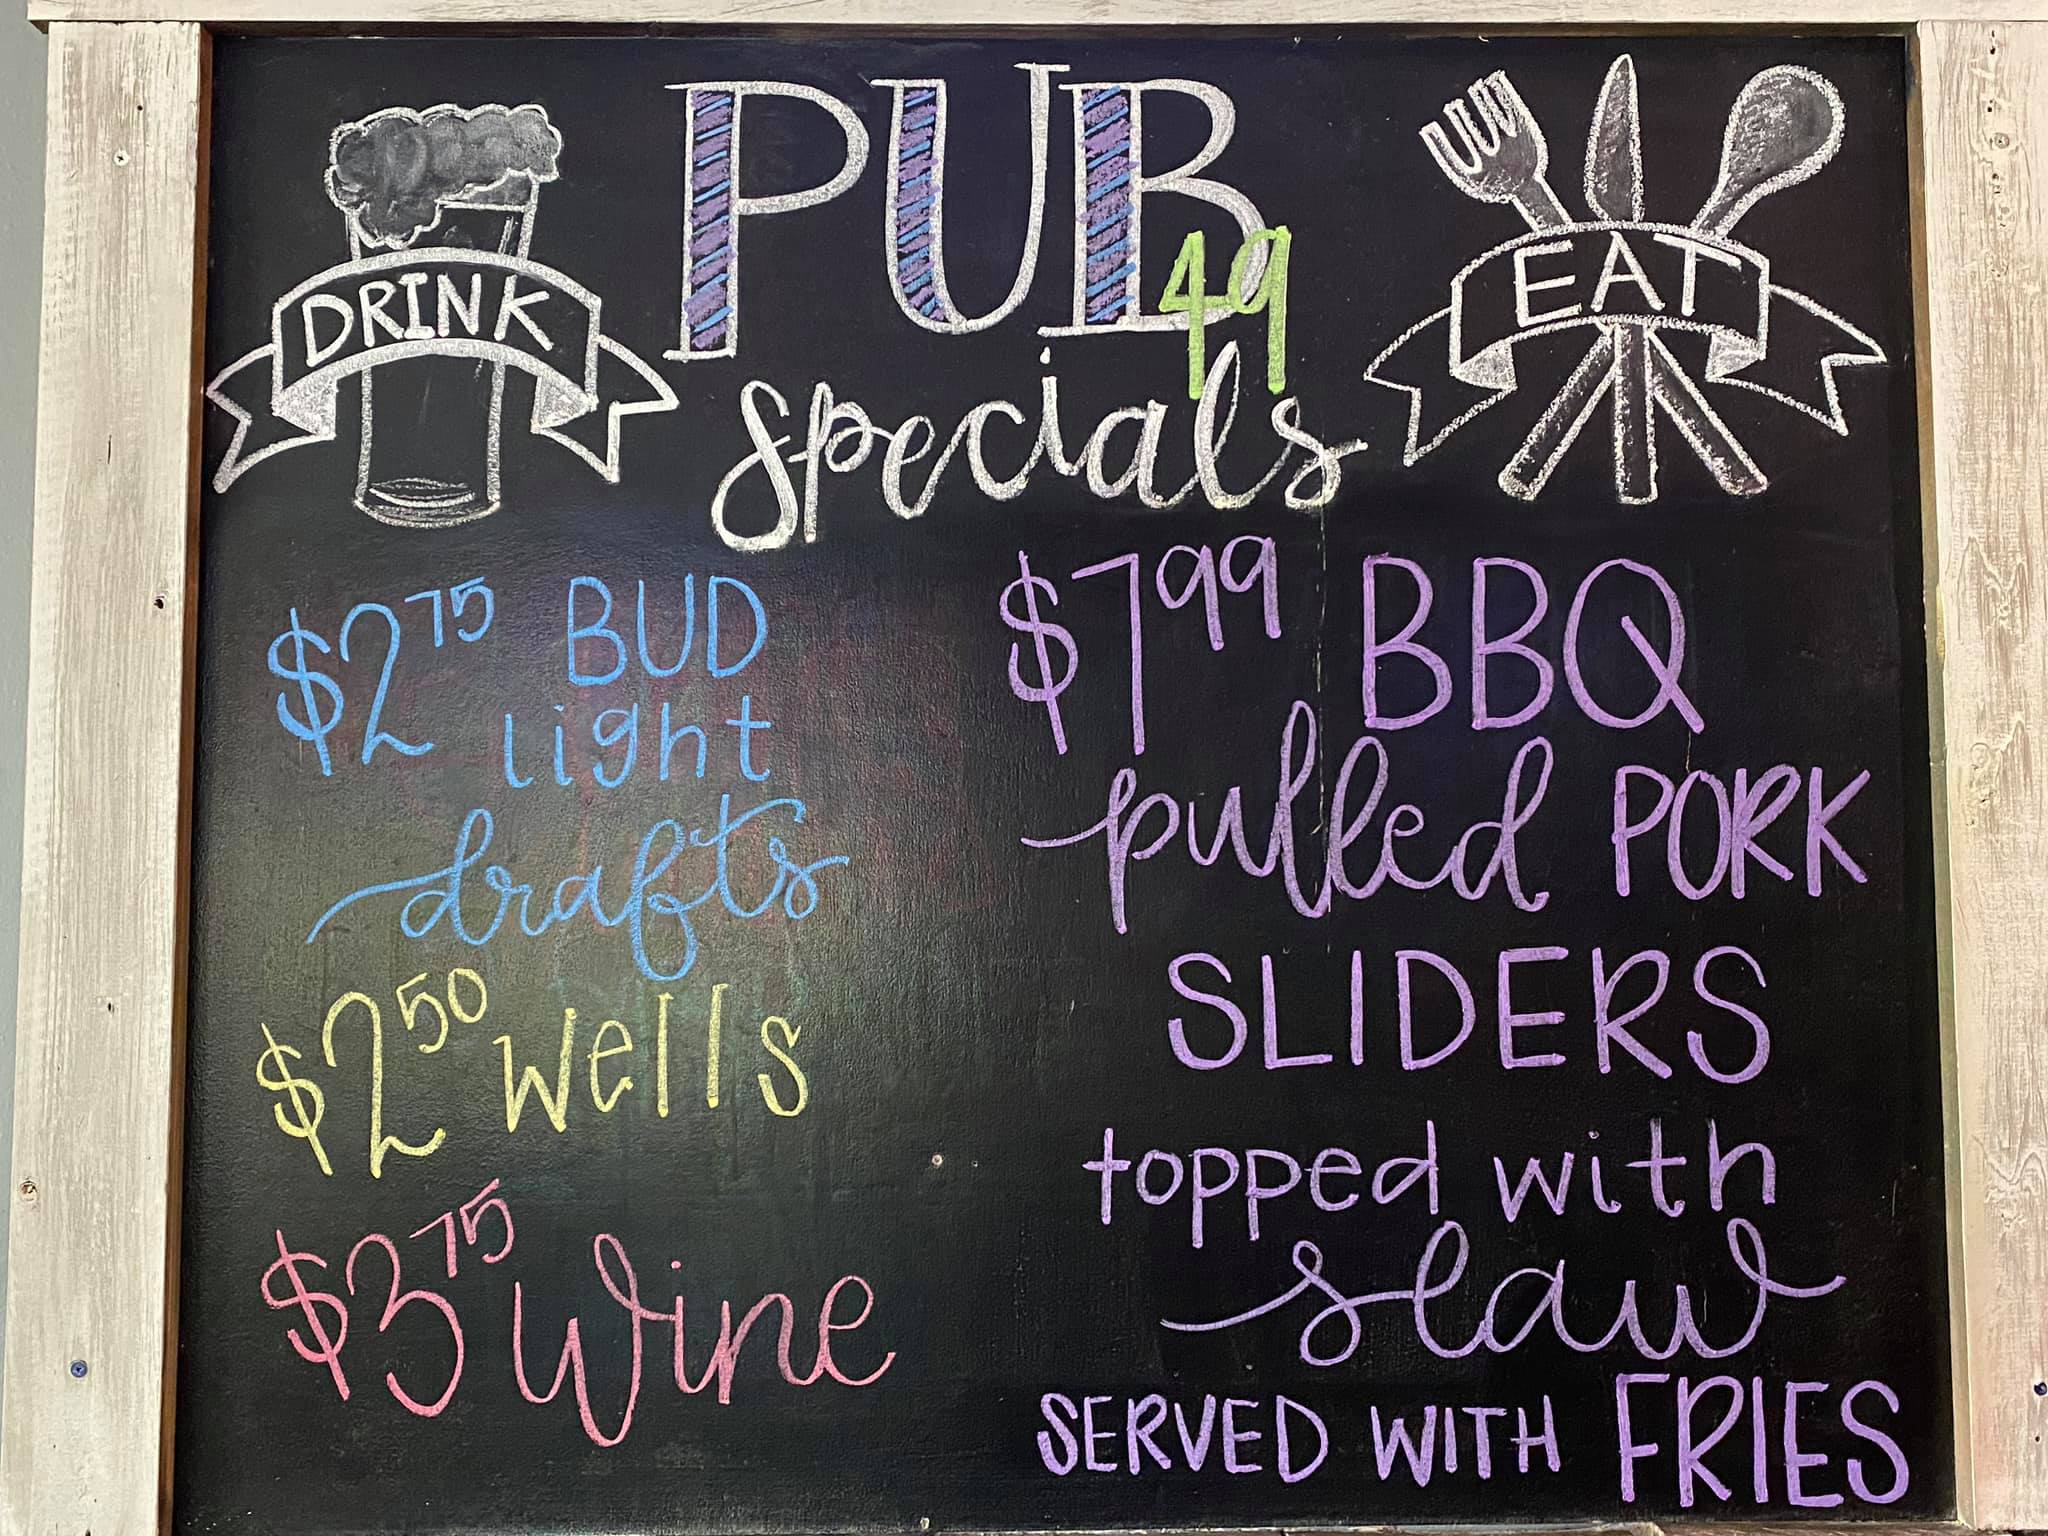 DRINK
PUB 49
specials
EAT
$2.75 BUD
light
drafts
$2.50 wells
$3.75 wine
$7.99 BBQ
pulled PORK
SLIDERS
topped with
slaw
SERVED WITH FRIES